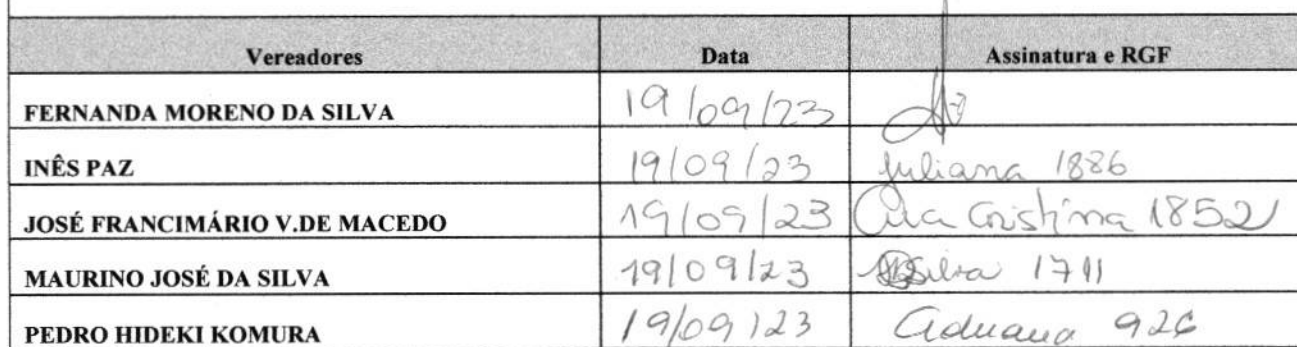 Vereadores Data Assinatura e RGF
FERNANDA MORENO DA SILVA 19/09/23
INÊS PAZ 19/09/23 Juliana 1886
JOSÉ FRANCIMÁRIO V.DE MACEDO 19/09/23 Ana Cristina 1852
MAURINO JOSÉ DA SILVA 19/09/23 1711
PEDRO HIDEKI KOMURA 19/09/23 926